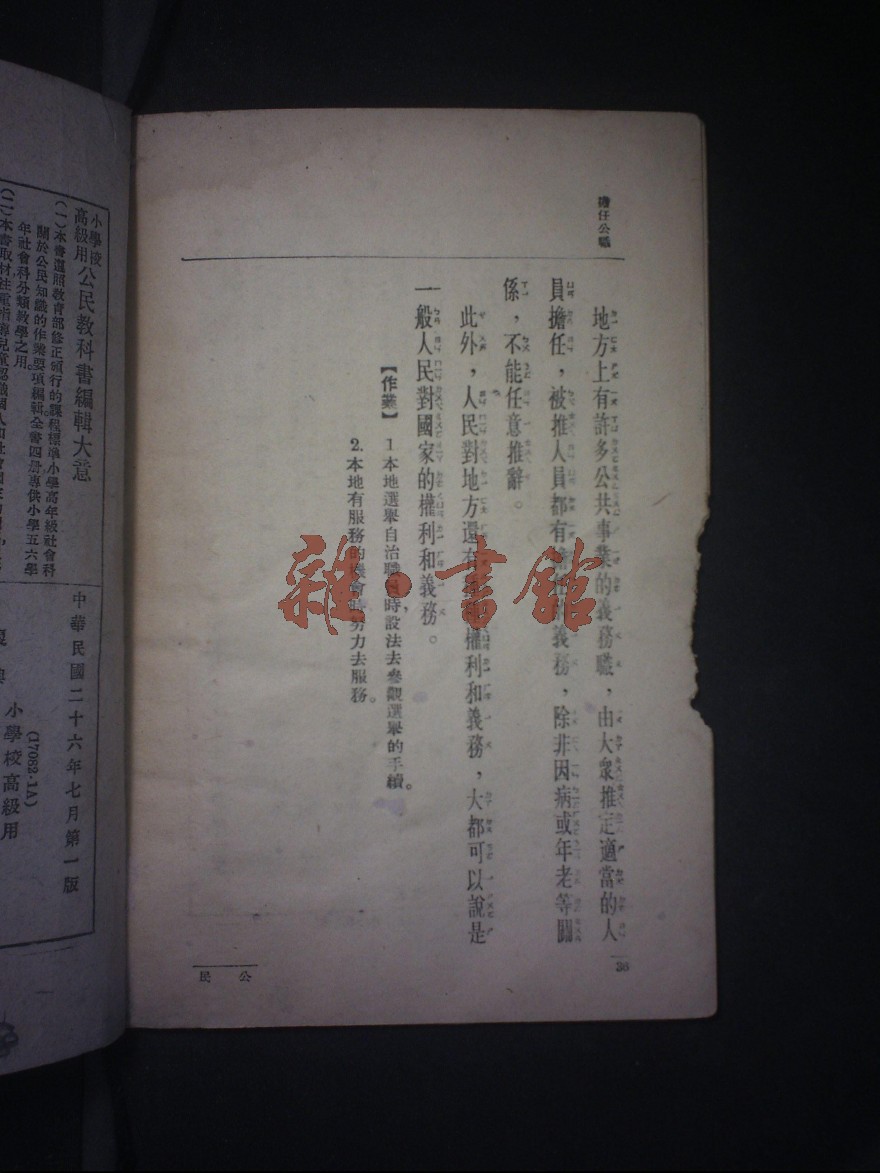 擔任公職
地方上有許多公共事業的義務職，由大衆推定適當的人
員擔任，被推人員都有擔任的義務，除非因病或年老等關
係，不能任意推辭。
此外，人民對地方還有權利和義務，大都可以說是
一般人民對國家的權利和義務。
【作業】 1 本地選舉自治職員時，設法去參觀選舉的手續。
2. 本地有服務的機會時，努力去服務。
36
公民
雜·書館
小學校
高級用公民教科書編輯大意
(一)本書遵照教育部修正頒行的課程標準小學高年級社會科
關於公民知識的作業要項編輯全書四册專供小學五六學
年社會科分類教學之用。
(二)本書取材注重指導兒童認識個人和社會
中華民國二十六年七月第一版
(17082·1A)
小學校高級用